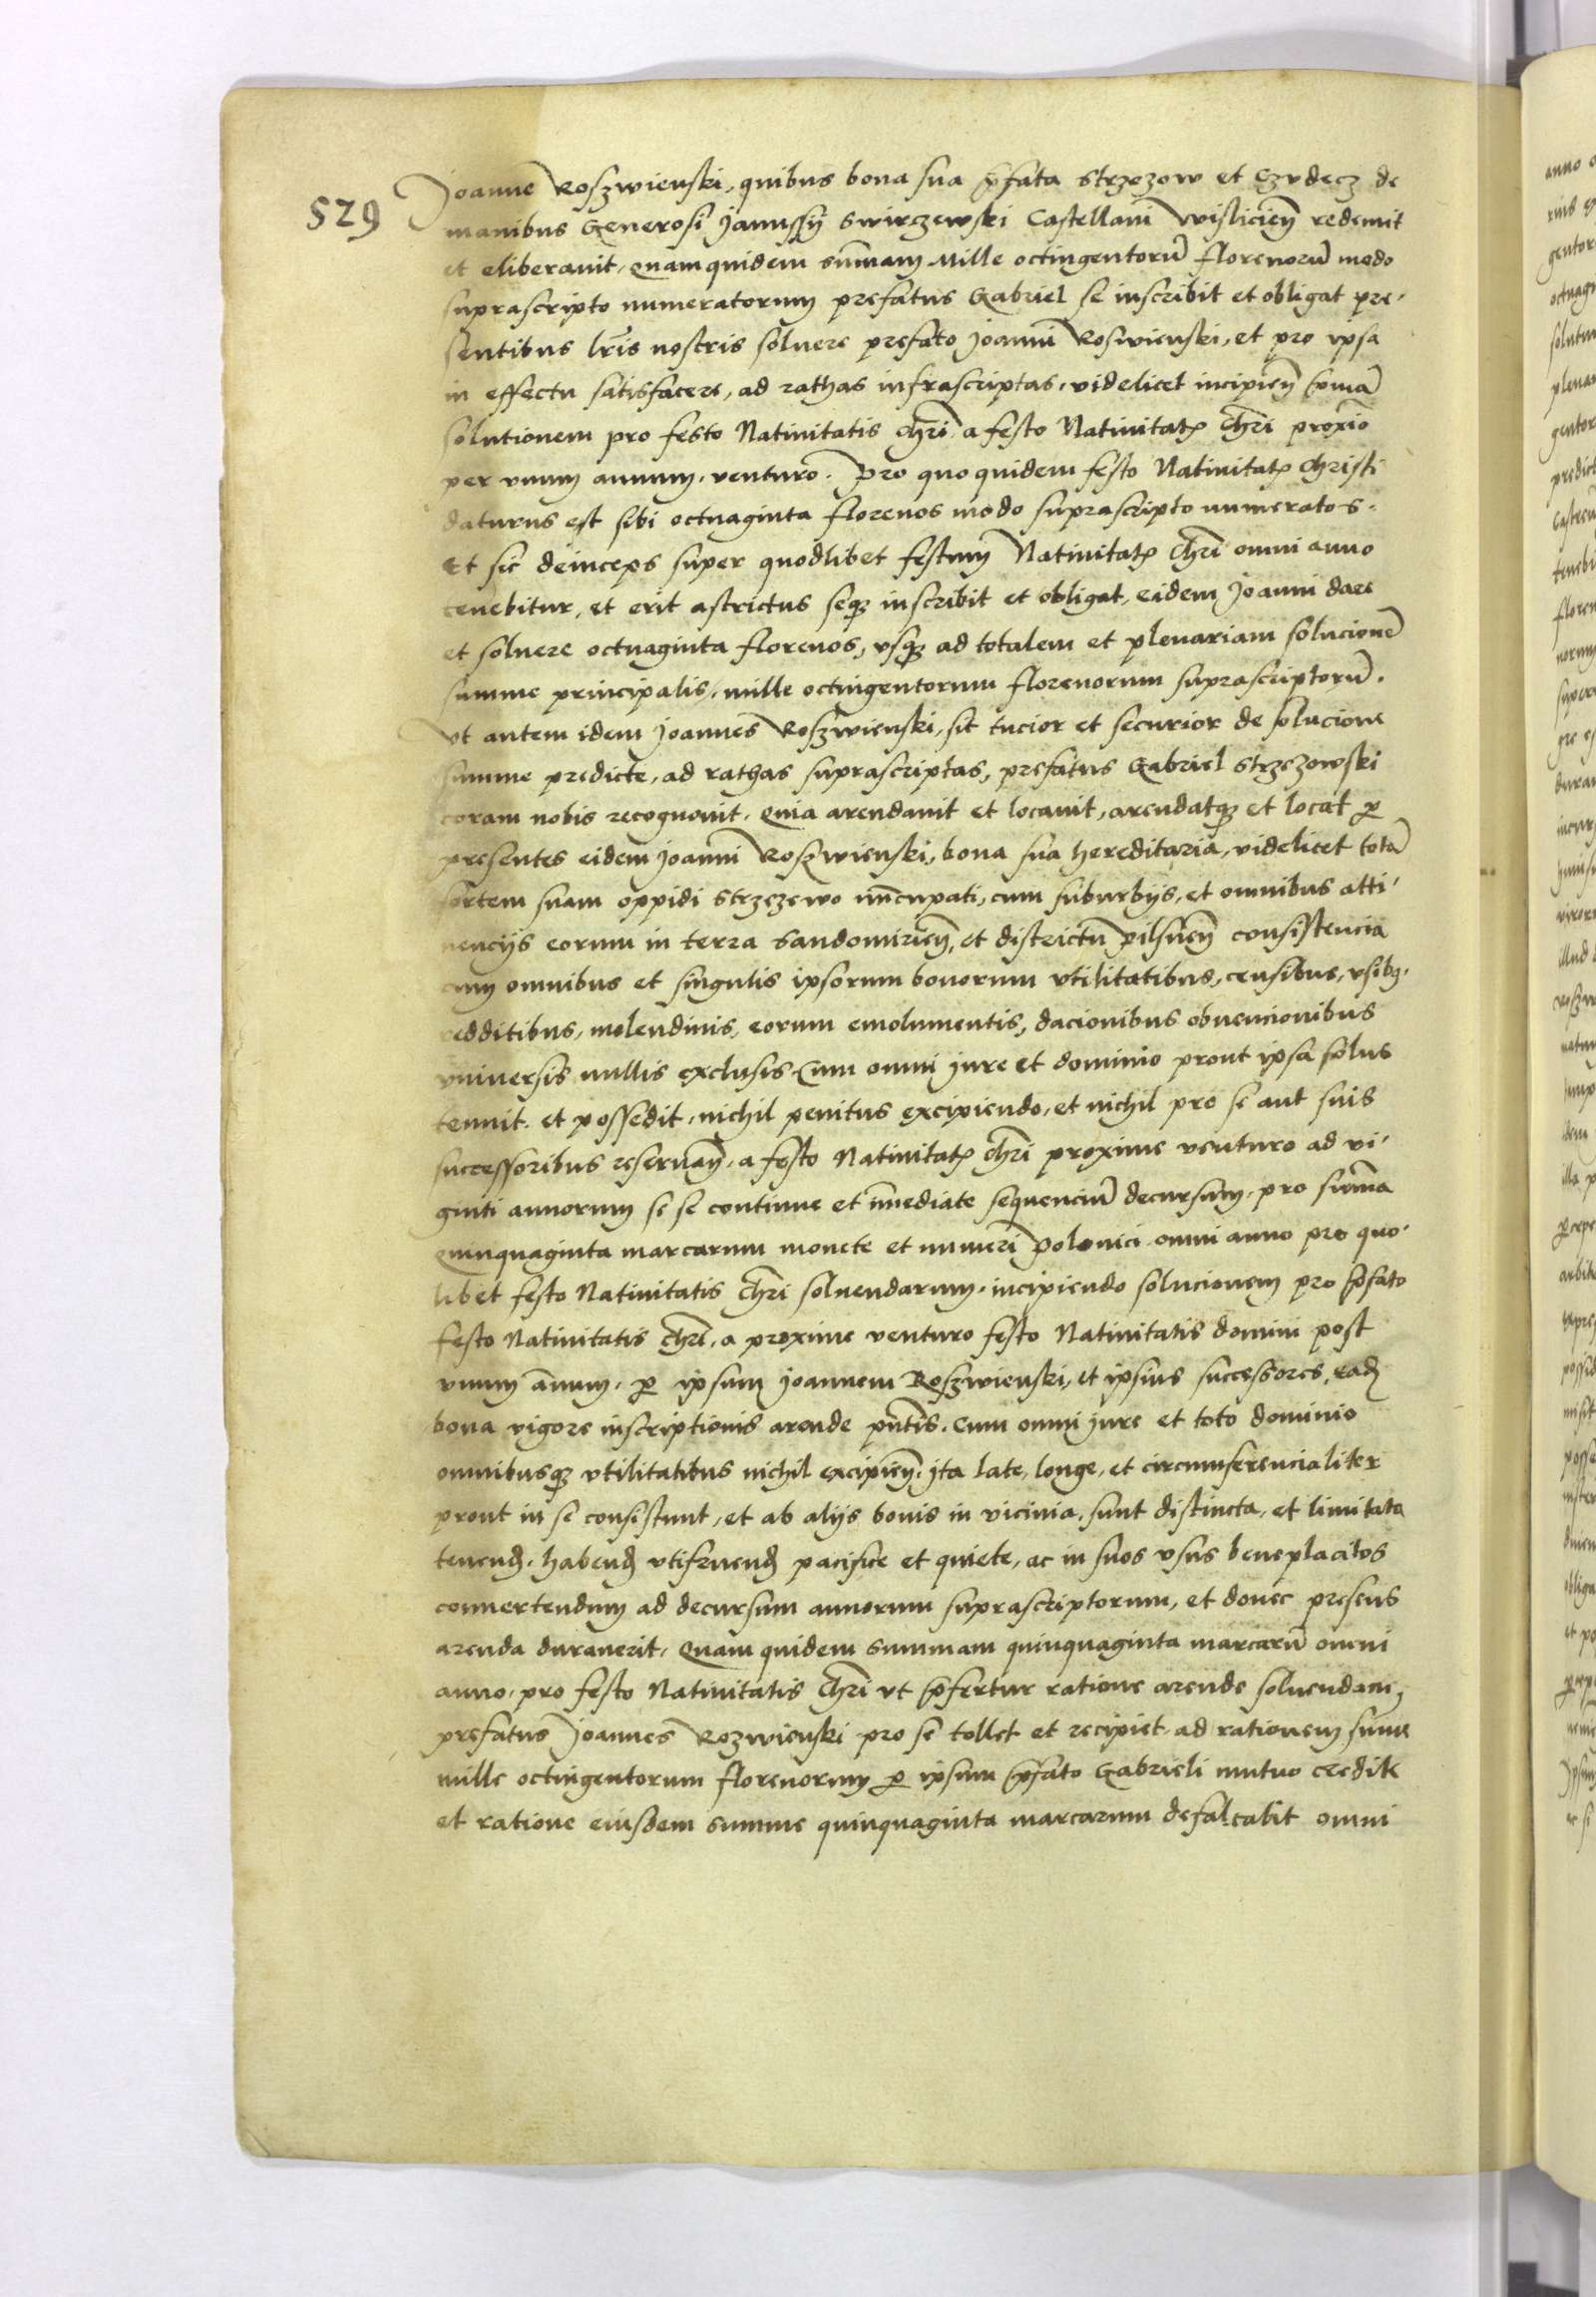 529
Joanne Roszwienski, quibus bona sua p̄fata Strzezow et Czudecz de
manibus Generosi Janussỹ Swirczewski Castellani Wislicieñ redemit
et eliberavit, quamquidem sum̄am Mille octingentorū florenorū modo
suprascripto numeratorum prefatus Gabriel se inscribit et obligat pre-
sentibus lr̄is nostris soluere prefato Joanni Roswienski, et pro ipsa
in effectu satisfacere, ad rathas infrascriptas, videlicet incipieñ p̄mā
solutionem pro festo Natiuitatis chr̄i a festo Natiuitatꝭ chr̄i proxīo
per vnum annum venturo. Pro quo quidem festo Natiuitatꝭ christi
daturus est sibi octuaginta florenos modo suprascripto numeratos.
Et sic deinceps super quodlibet festum Natiuitatꝭ chr̄i omni anno
tenebitur, et erit astrictus seqꝫ inscribit et obligat, eidem Joanni dare
et soluere octuaginta florenos, vsqꝫ ad totalem et plenariam solucionē
summe principalis, mille octingentorum florenorum suprascriptorū.
Vt autem idem Joannes Roszwienski, sit tucior et securior de solucione
summe predicte, ad rathas suprascriptas, prefatus Gabriel Strzezowski
coram nobis recognouit. Quia arendauit et locauit, arendatqꝫ et locat ꝑ
presentes eidem Joanni Roszwienski, bona sua hereditaria, videlicet totā
sortem suam oppidi Strzezewo nūcupati, cum suburbijs, et omnibus atti-
nencijs eorum in terra Sandomirieñ, et districtu pilsneñ consistencia
cum omnibus et singulis ipsorum bonorum vtilitatibus, censibus, vsibꝫ.
redditibus, molendinis, eorum emolumentis, dacionibus obuencionibus
vniuersis nullis exclusis. Cum omni jure et dominio prout ipsa solus
tenuit et possedit, nichil penitus excipiendo, et nichil pro se aut suis
successoribus reseruañ, a festo Natiuitatꝭ chr̄i proxime venturo ad vi-
ginti annorum se se continue et im̄ediate sequenciū decursum, pro sum̄a
quinquaginta marcarum monete et numeri Polonici omni anno pro quo-
libet festo Natiuitatis chr̄i soluendarum, incipiendo solucionem pro p̄fato
festo Natiuitatis chr̄i, a proxime venturo festo Natiuitatis domini post
vnum an̄um, ꝑ ipsum Joannem Roszwienski, et ipsius successores, eađ
bona vigore inscriptionis arende pn̄tis. Cum omni jure et toto dominio
omnibusqꝫ vtilitatibus nichil excipieñ, jta late, longe, et circumferencialiter
prout in se consistunt, et ab alijs bonis in vicinia, sunt distincta, et limitata
tenenđ, habenđ vtifruenđ pacifice et quiete, ac in suos vsus beneplacitos
conuertendum ad decursum annorum suprascriptorum, et donec presens
arenda durauerit, Quam quidem summam quinquaginta marcarū omni
anno, pro festo Natiuitatis chr̄i vt p̄fertur ratione arende soluendam,
prefatus Joannes Rozwienski pro se tollet et recipiet ad rationem sum̄e
mille octingentorum florenorum ꝑ ipsum p̄fato Gabrieli mutuo credite
et ratione eiusdem summe quinquaginta marcarum defalcabit omni